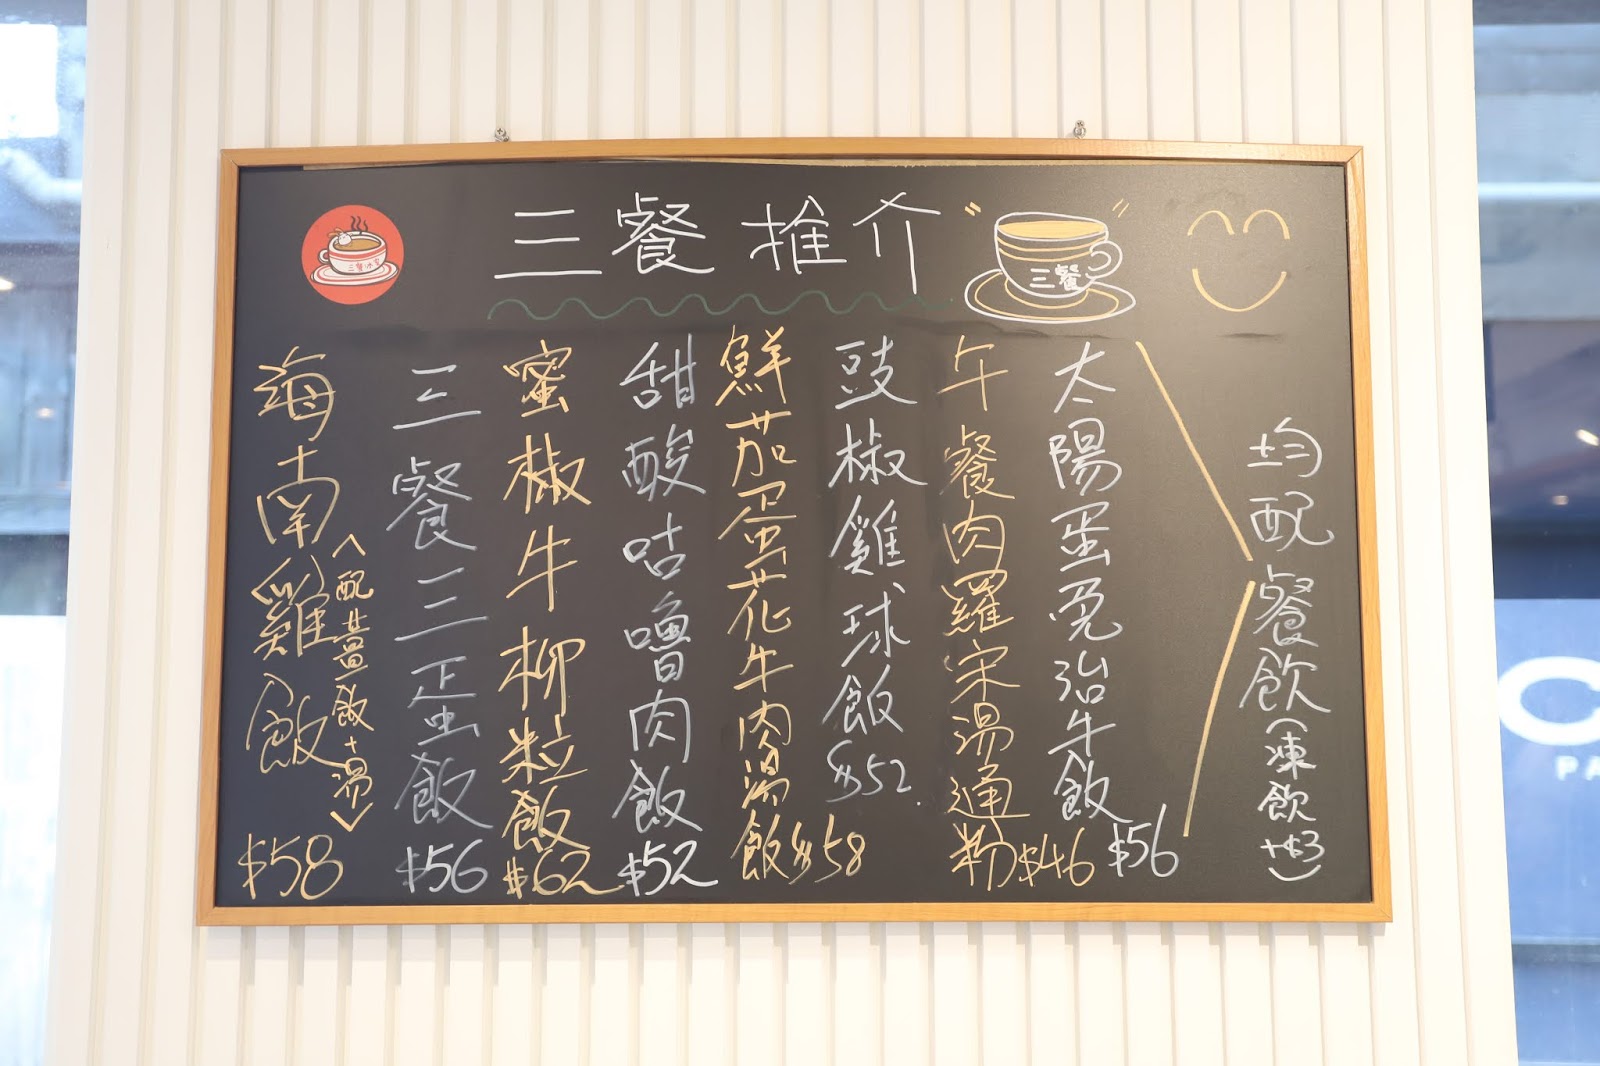 三餐冰室
三餐推介
三餐
均配餐飲(凍飲+$3)
太陽蛋免治牛飯$56
午餐肉羅宋湯通粉$46
豉椒雞球飯$52
鮮茄蛋花牛肉湯飯$58
甜酸咕嚕肉飯$52
蜜椒牛柳粒飯$62
三餐三蛋飯$56
海南雞飯$58
<配薑飯+湯>